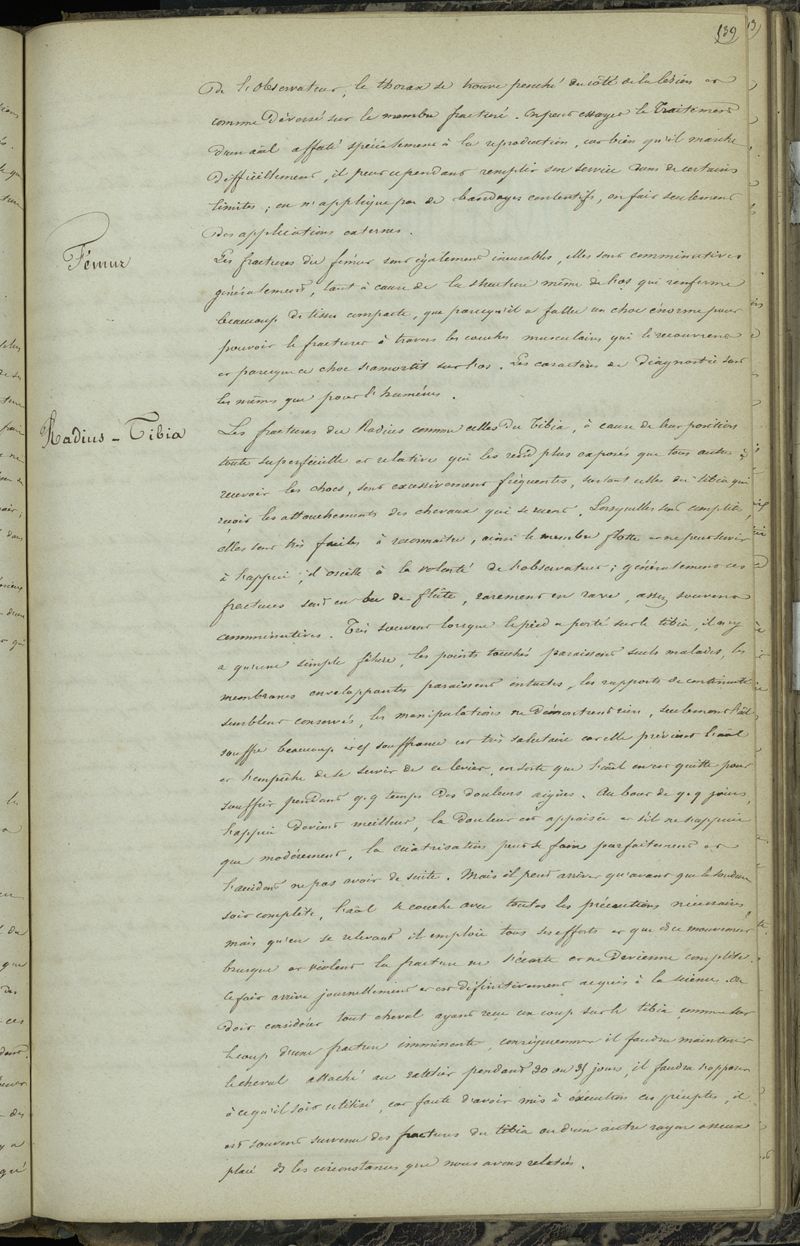 139
de l'observateur, le thorax se trouve penché du côté de la lésion et
comme déversé sur le membre fracturé. On peut essayer le traitement
d'un aal affecté spécialement à la reproduction, car bien qu'il marche
difficilement, il peut cependant remplir son service dans de certaines
limites ; on n'applique pas de bandages contentifs, on fait seulement
des applications externes.
Fémur
Les fractures du fémur sont également incurables, elles sont comminutives
généralement, tant à cause de la structure même de l'os qui renferme
beaucoup de tissu compacte, que parcequ'il a fallu un choc énorme pour
pouvoir le fracturer à travers les couches musculaires qui le recouvrent
et parceque ce choc s'amortit sur l'os. Les caractères de diagnostic sont
les mêmes que pour l'humérus.
Radius - Tibia
Les fractures du Radius comme celles du Tibia, à cause de leur position
toute superficielle et relative qui les rend plus exposés que tous autres à
recevoir les chocs, sont excessivement fréquentes, surtout celles du tibia qui
reçoit les attouchements des chevaux qui se ruent. Lorsqu'elles sont complètes,
elles sont très faciles à reconnaître, ainsi le membre flotte et ne peut servir
à l'appui, il oscille à la volonté de l'observateur ; généralement ces
fractures sont en bec de flûte, rarement en rave, assez souvent
comminutives. Très souvent lorsque le pied a porté sur le tibia, il n'y
a qu'une simple fêlure, les points touchés paraissent seuls malades, les
membranes enveloppantes paraissent intactes, les rapports de continuité
semblent conservés, les manipulations ne démontrent rien, seulement l'aal
souffre beaucoup et cette souffrance est très salutaire car elle prévient l'aal
et l'empêche de se servir de ce levier, en sorte que l'aal en est quitte pour
souffrir pendant q.q temps des douleurs aigües. Au bout de q.q jours,
l'appui devient meilleur, la douleur est appaisée et s'il ne s'appuie
que modérément, la cicatrisation peut se faire parfaitement et
l'accident ne pas avoir de suite. Mais il peut arriver qu'avant que la soudure
soit complète, l'aal se couche avec toutes les précautions nécessaires,
mais qu'en se relevant il emploie tous ses efforts et que de ce mouvement
brusque et violent la fracture ne s'écarte et ne devienne complète.
Ce fait arrive journellement et est définitivement acquis à la science. On
doit considérer tout cheval ayant reçu un coup sur le tibia comme sous
le coup d'une fracture imminente, conséquemment il faudra maintenir
le cheval attaché au ratelier pendant 30 ou 35 jours, il faudra s'opposer
à ce qu'il soit utilisé, car faute d'avoir mis à éxécution ces préceptes, il
est souvent survenu des fractures du tibia ou d'un autre rayon osseux
placé ds les circonstances que nous avons relatées.